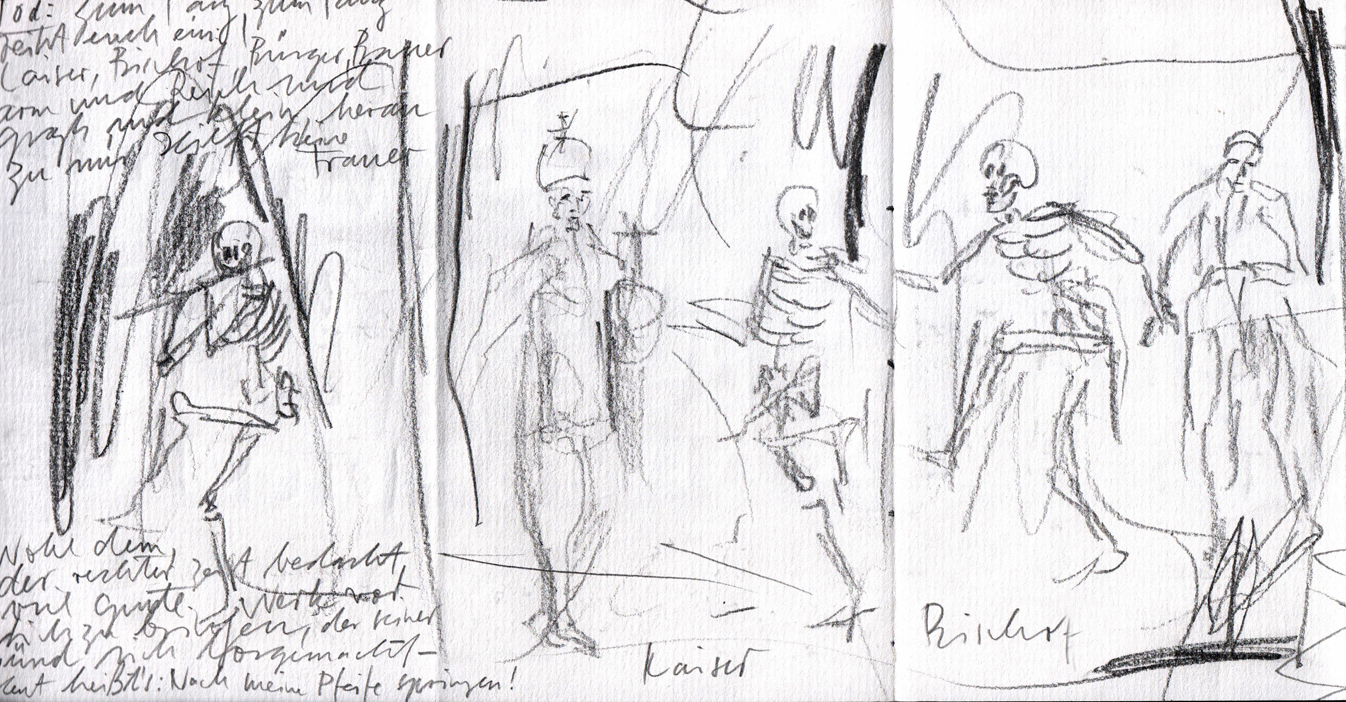 Tod: Zum Tanz, zum Tanz
reiht euch ein!
Kaiser, Bischof, Bürger, Bauer
arm und Reich und
groß und klein heran
zu mir hilft keine
Trauer
Wohl dem,
der rechter Zeit bedacht,
viel gute Werke vor
sich zu bringen, der seiner
sünd sich
heut heißt's: Nach meine Pfeife springen!
Kaiser
Bischof